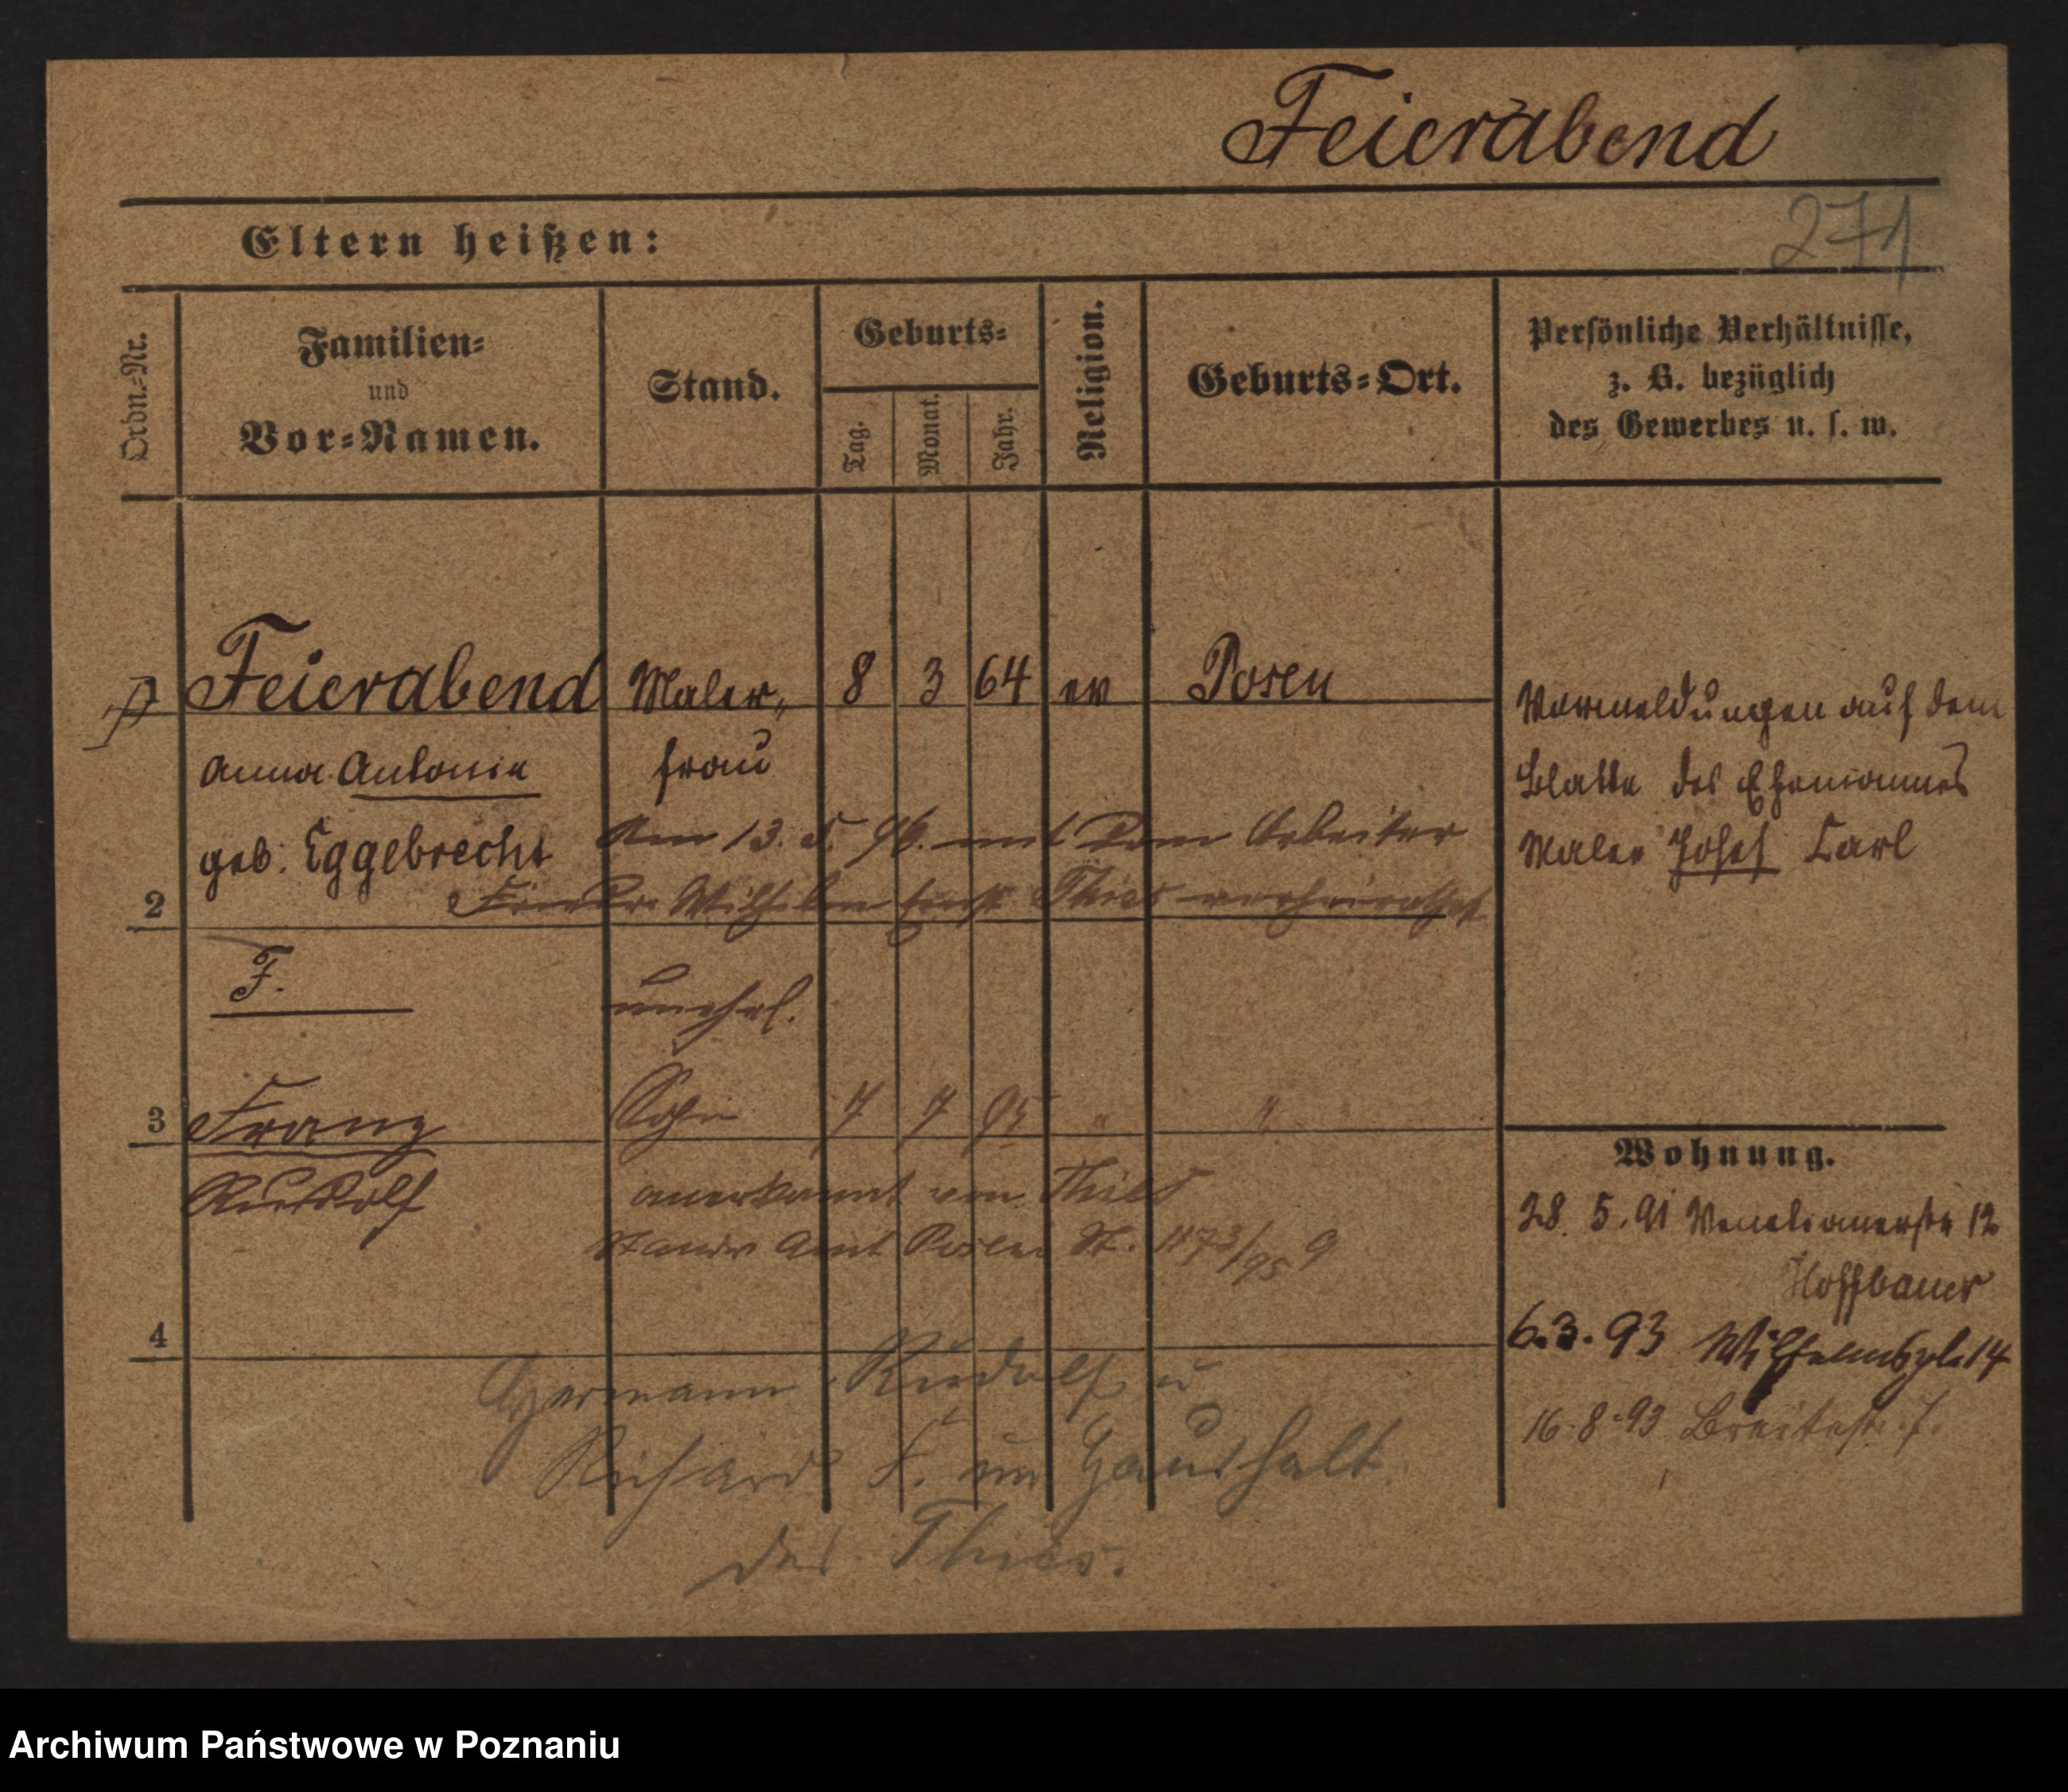 Feierabend
271
Eltern heißen:
Ordn.-Nr.
Familien-
und
Vor-Namen.
Stand.
Geburts-
Tag.
Monat.
Jahr.
Religion.
Geburts-Ort.
Persönliche Verhältnisse,
z. B. bezüglich
des Gewerbes u. s. w.
Feierabend Maler- 8 3 64 ev Posen
Anna Antonie frau
geb. Eggebrecht
Am 13. 5. 96. mit dem Arbeiter
Friedr. Wilhelm Ernst Thies verheirathet
Vormeldungen auf dem
Blatte des Ehemannes
Maler Josef Carl
2
F. unehel.
3 Franz Sohn 7 7 95 " "
Rudolf anerkannt von Thies
Stands Amt Posen St. 1173/95 9
4
Hermann Rudolf u
Richard F. im Haushalt
des Thies.
Wohnung.
28. 5. 91 Venetianerstr 12
Hoffbauer
6. 3. 93 Wilhelmspl. 14
16. 8. 93 Breitestr. 7.
Archiwum Państwowe w Poznaniu